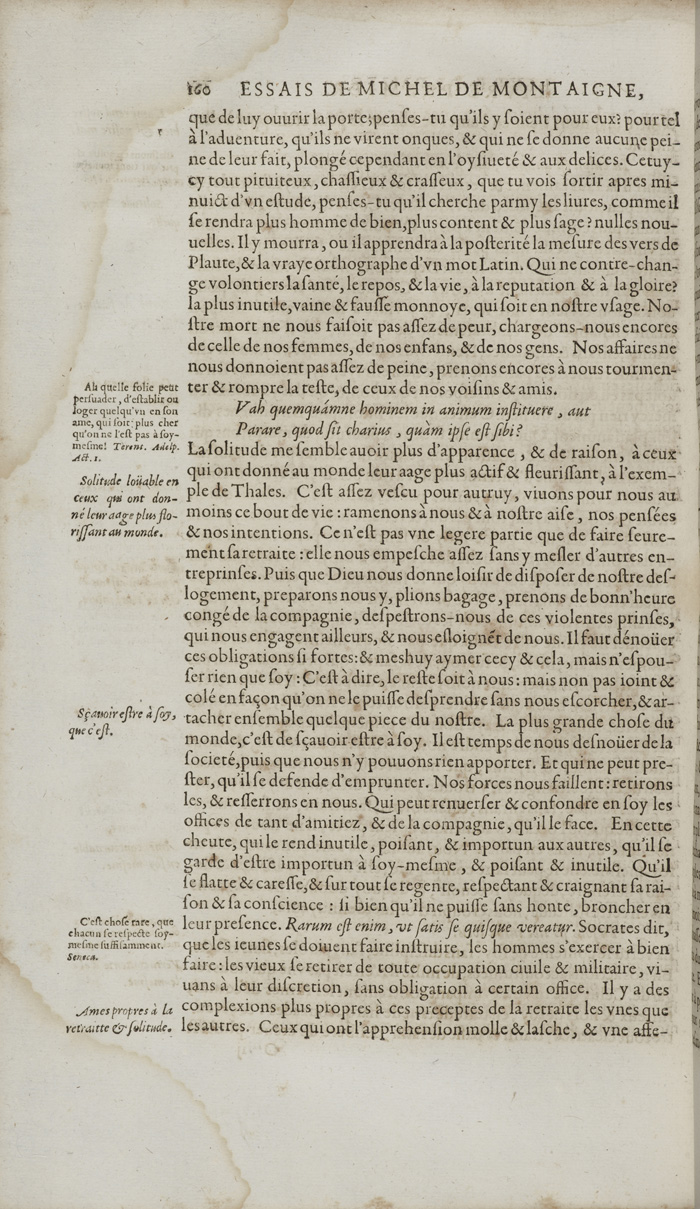 160 ESSAIS DE MICHEL DE MONTAIGNE,
que de luy ouurir la porte; penſes-tu qu'ils y ſoient pour eux? pour tel
à l'aduenture, qu'ils ne virent onques, & qui ne ſe donne aucune pei-
ne de leur fait, plongé cependant en l'oyſiueté & aux delices. Cetuy-
cy tout pituiteux, chaſſieux & craſſeux, que tu vois ſortir apres mi-
nuict d'vn eſtude, penſes-tu qu'il cherche parmy les liures, comme il
ſe rendra plus homme de bien, plus content & plus ſage? nulles nou-
uelles. Il y mourra, ou il apprendra à la poſterité la meſure des vers de
Plaute, & la vraye orthographe d'vn mot Latin. Qui ne contre-chan-
ge volontiers la ſanté, le repos, & la vie, à la reputation & à la gloire?
la plus inutile, vaine & fauſſe monnoye, qui ſoit en noſtre vſage. No-
ſtre mort ne nous faiſoit pas aſſez de peur, chargeons-nous encores
de celle de nos femmes, de nos enfans, & de nos gens. Nos affaires ne
nous donnoient pas aſſez de peine, prenons encores à nous tourmen-
ter & rompre la teſte, de ceux de nos voiſins & amis.
Vah quemquámne hominem in animum inſtituere, aut
Parare, quod ſit charius, quàm ipſe eſt ſibi?
Ah quelle folie peut
perſuader, d'eſtablir ou
loger quelqu'vn en ſon
ame, qui ſoit plus cher
qu'on ne l'eſt pas à ſoy-
meſme! Terent. Adelp.
Act. 1.
La ſolitude me ſemble auoir plus d'apparence, & de raiſon, à ceux
qui ont donné au monde leur aage plus actif & fleuriſſant, à l'exem-
ple de Thales. C'eſt aſſez veſcu pour autruy, viuons pour nous au
moins ce bout de vie: ramenons à nous & à noſtre aiſe, nos penſées
& nos intentions. Ce n'eſt pas vne legere partie que de faire ſeure-
ment ſa retraite: elle nous empeſche aſſez ſans y meſler d'autres en-
trepriſes. Puis que Dieu nous donne loiſir de diſpoſer de noſtre deſ-
logement, preparons nous y, plions bagage, prenons de bonn'heure
congé de la compagnie, deſpeſtrons-nous de ces violentes prinſes,
qui nous engagent ailleurs, & nous eſloignẽt de nous. Il faut dénoüer
ces obligations ſi fortes: & meshuy aymer cecy & cela, mais n'eſpou-
ſer rien que ſoy: C'eſt à dire, le reſte ſoit à nous: mais non pas ioint &
colé en façon qu'on ne le puiſſe deſprendre ſans nous eſcorcher, & ar-
tacher enſemble quelque piece du noſtre. La plus grande choſe du
monde, c'eſt de ſçauoir eſtre à ſoy. Il eſt temps de nous deſnoüer de la
ſocieté, puis que nous n'y pouuons rien apporter. Et qui ne peut pre-
ſter, qu'il ſe defende d'emprunter. Nos forces nous faillent: retirons
les, & reſſerrons en nous. Qui peut renuerſer & confondre en ſoy les
offices de tant d'amitiez, & de la compagnie, qu'il le face. En cette
cheute, qui le rend inutile, poiſant, & importun aux autres, qu'il ſe
garde d'eſtre importun à ſoy-meſme, & poiſant & inutile. Qu'il
ſe flatte & careſſe, & ſur tout ſe regente, reſpectant & craignant ſa rai-
ſon & ſa conſcience: ſi bien qu'il ne puiſſe ſans honte, broncher en
leur preſence. Rarum eſt enim, vt ſatis ſe quiſque vereatur. Socrates dit,
que les ieunes ſe doiuent faire inſtruire, les hommes s'exercer à bien
faire: les vieux ſe retirer de toute occupation ciuile & militaire, vi-
uans à leur diſcretion, ſans obligation à certain office. Il y a des
complexions plus propres à ces preceptes de la retraite les vnes que
les autres. Ceux qui ont l'apprehenſion molle & laſche, & vne affe-
Solitude loüable en
ceux qui ont don-
né leur aage plus flo-
riſſant au monde.
Sçauoir eſtre à ſoy,
que c'eſt.
C'eſt choſe rare, que
chacun ſe reſpecte ſoy-
meſme ſuffiſamment.
Seneca.
Ames propres à la
retraitte & ſolitude.